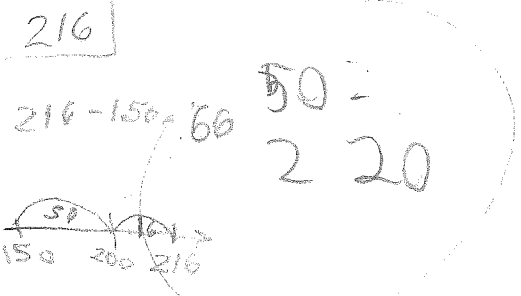 216
216-150= 66
50 -
2 20
50 16
150 200 216